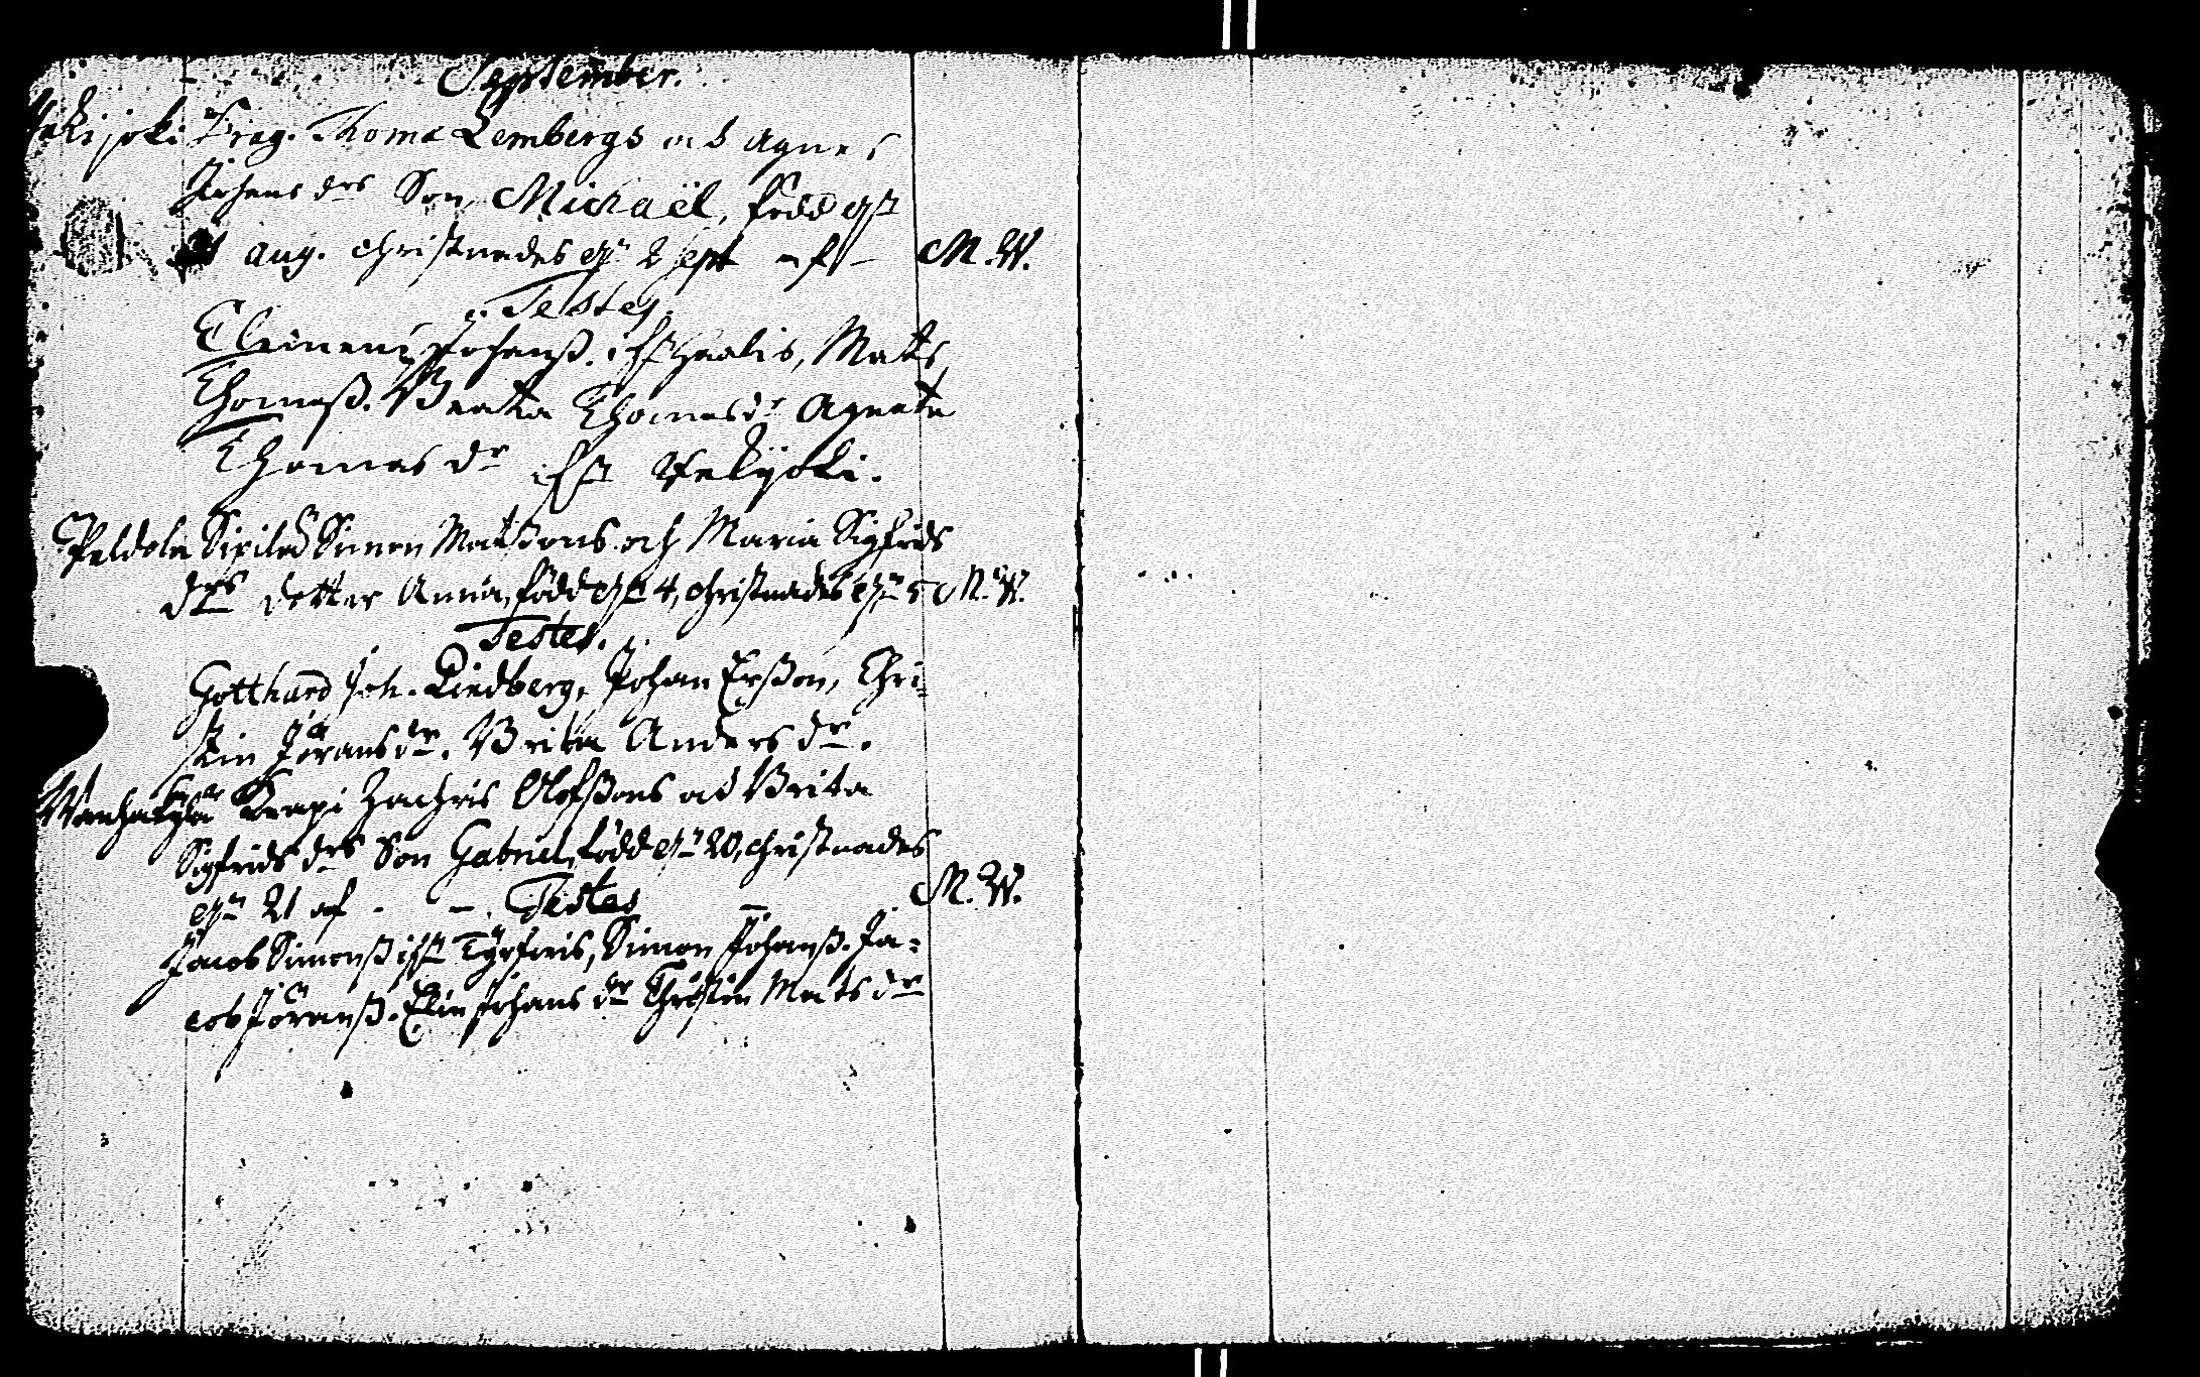 September.
Drag. Thomæ Lembergs och Agnes
Johans drs Son, Michaël, född dn
aug. christnades dn 2 sept af – M.W.
Testes.
Clemens Johanß. ifrån Haalis, Matts
Thomaß. Beata Thomasdr Agneta
Thomas dr ifrån Yrkijoki.
Peldola Sipilas Simon Matssons och Maria Sigfrids
drs dotter Anna, född dn 4, christnades dn 5 M.W.
Testes.
Gotthard Joh. Lindberg, Johan Erßon, Chri=
stin Jöransdr. Brita Anders dr.
Wanhakylä Krapi Zachris Olofßons och Brita
Sigfrids drs Son Gabriel, född dn 20, christnades
dn 21 af - – . Testes – M.W.
Jacob Simonß ifrån Simon Johanß. Ja=
cob Jöranß. Elin Johans dr Christin Mats dr